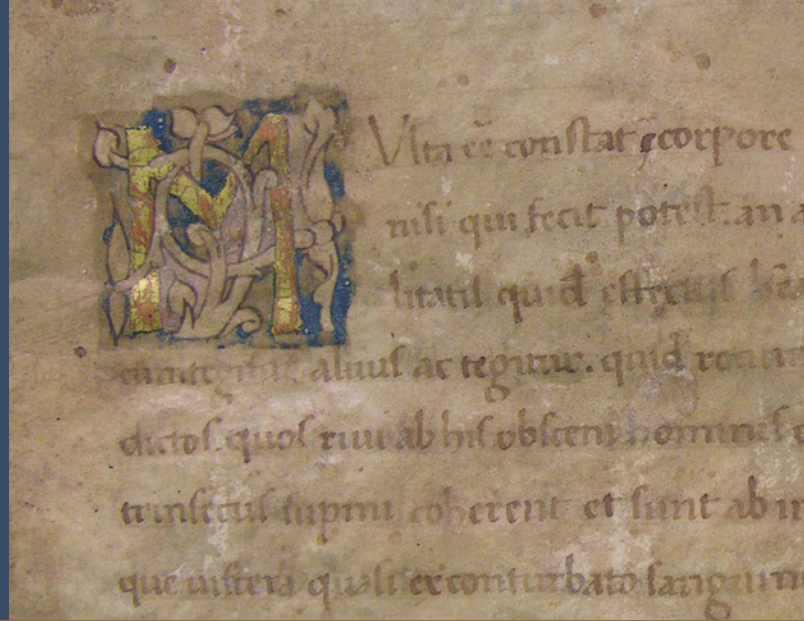 MUlta eē constat corpore
nisi qui fecit potest. an a
litatis quid effectus
aluus ac tegitur. quid
dictos. quos riui ab his obsceni
trinsecus supini coherent et sunt ab in
que uiscera quasi ex conturbato sanguine